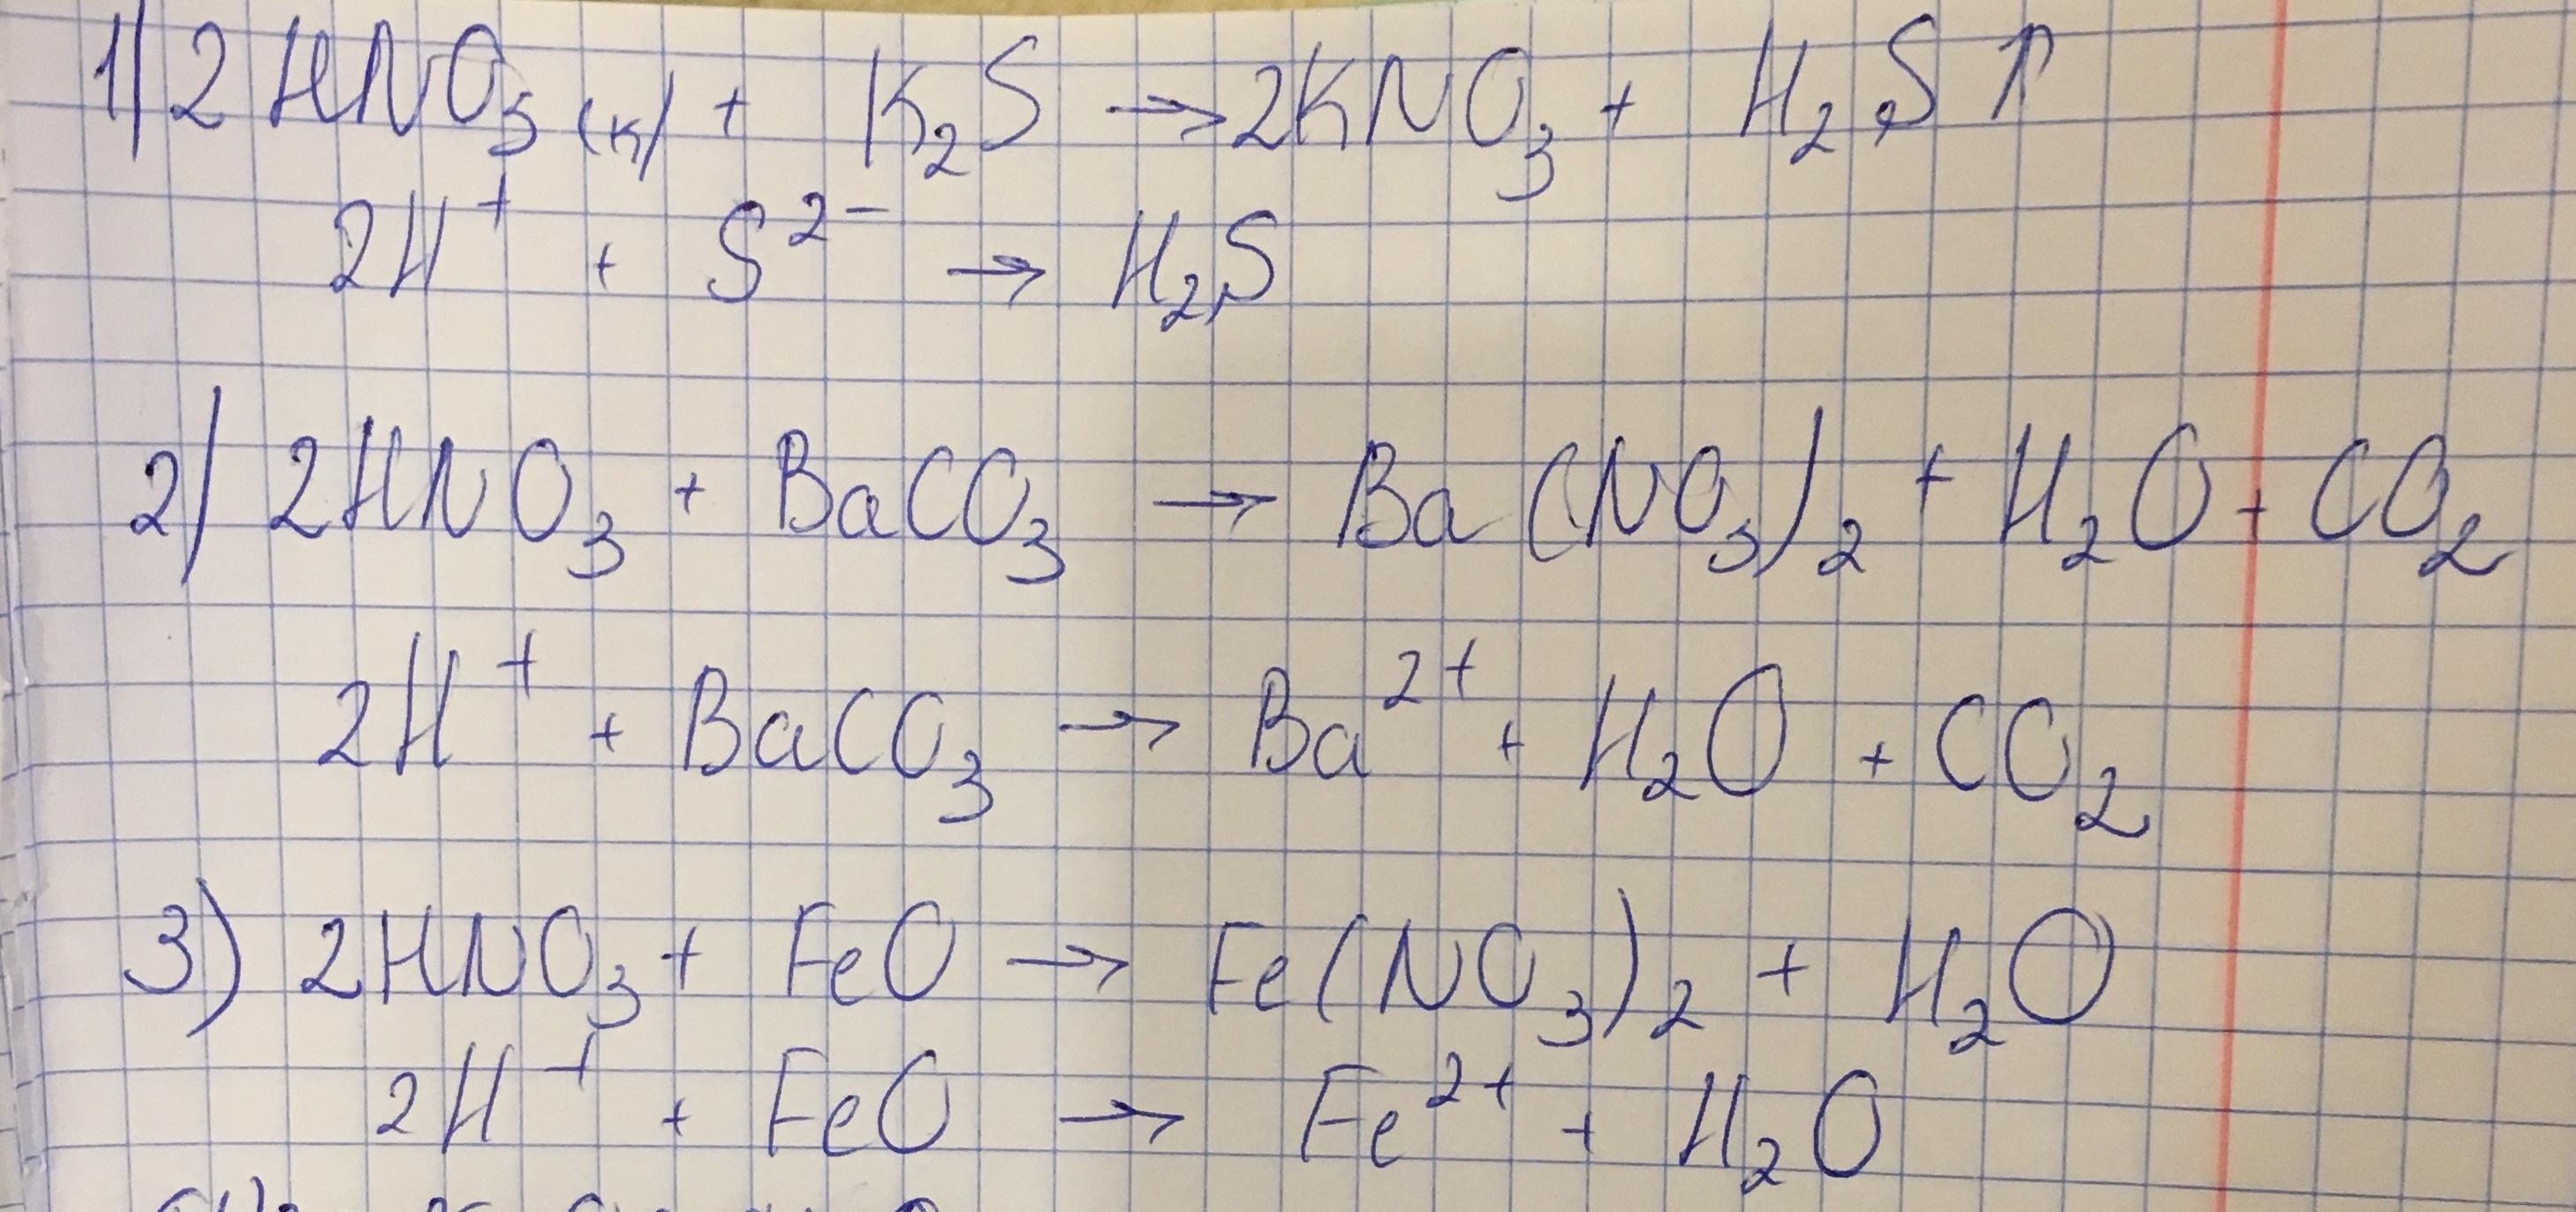 1) 2HNO₃ (к) + K₂S → 2KNO₃ + H₂S ↑
2H⁺ + S²⁻ → H₂S
2) 2HNO₃ + BaCO₃ → Ba(NO₃)₂ + H₂O + CO₂
2H⁺ + BaCO₃ → Ba²⁺ + H₂O + CO₂
3) 2HNO₃ + FeO → Fe(NO₃)₂ + H₂O
2H⁺ + FeO → Fe²⁺ + H₂O